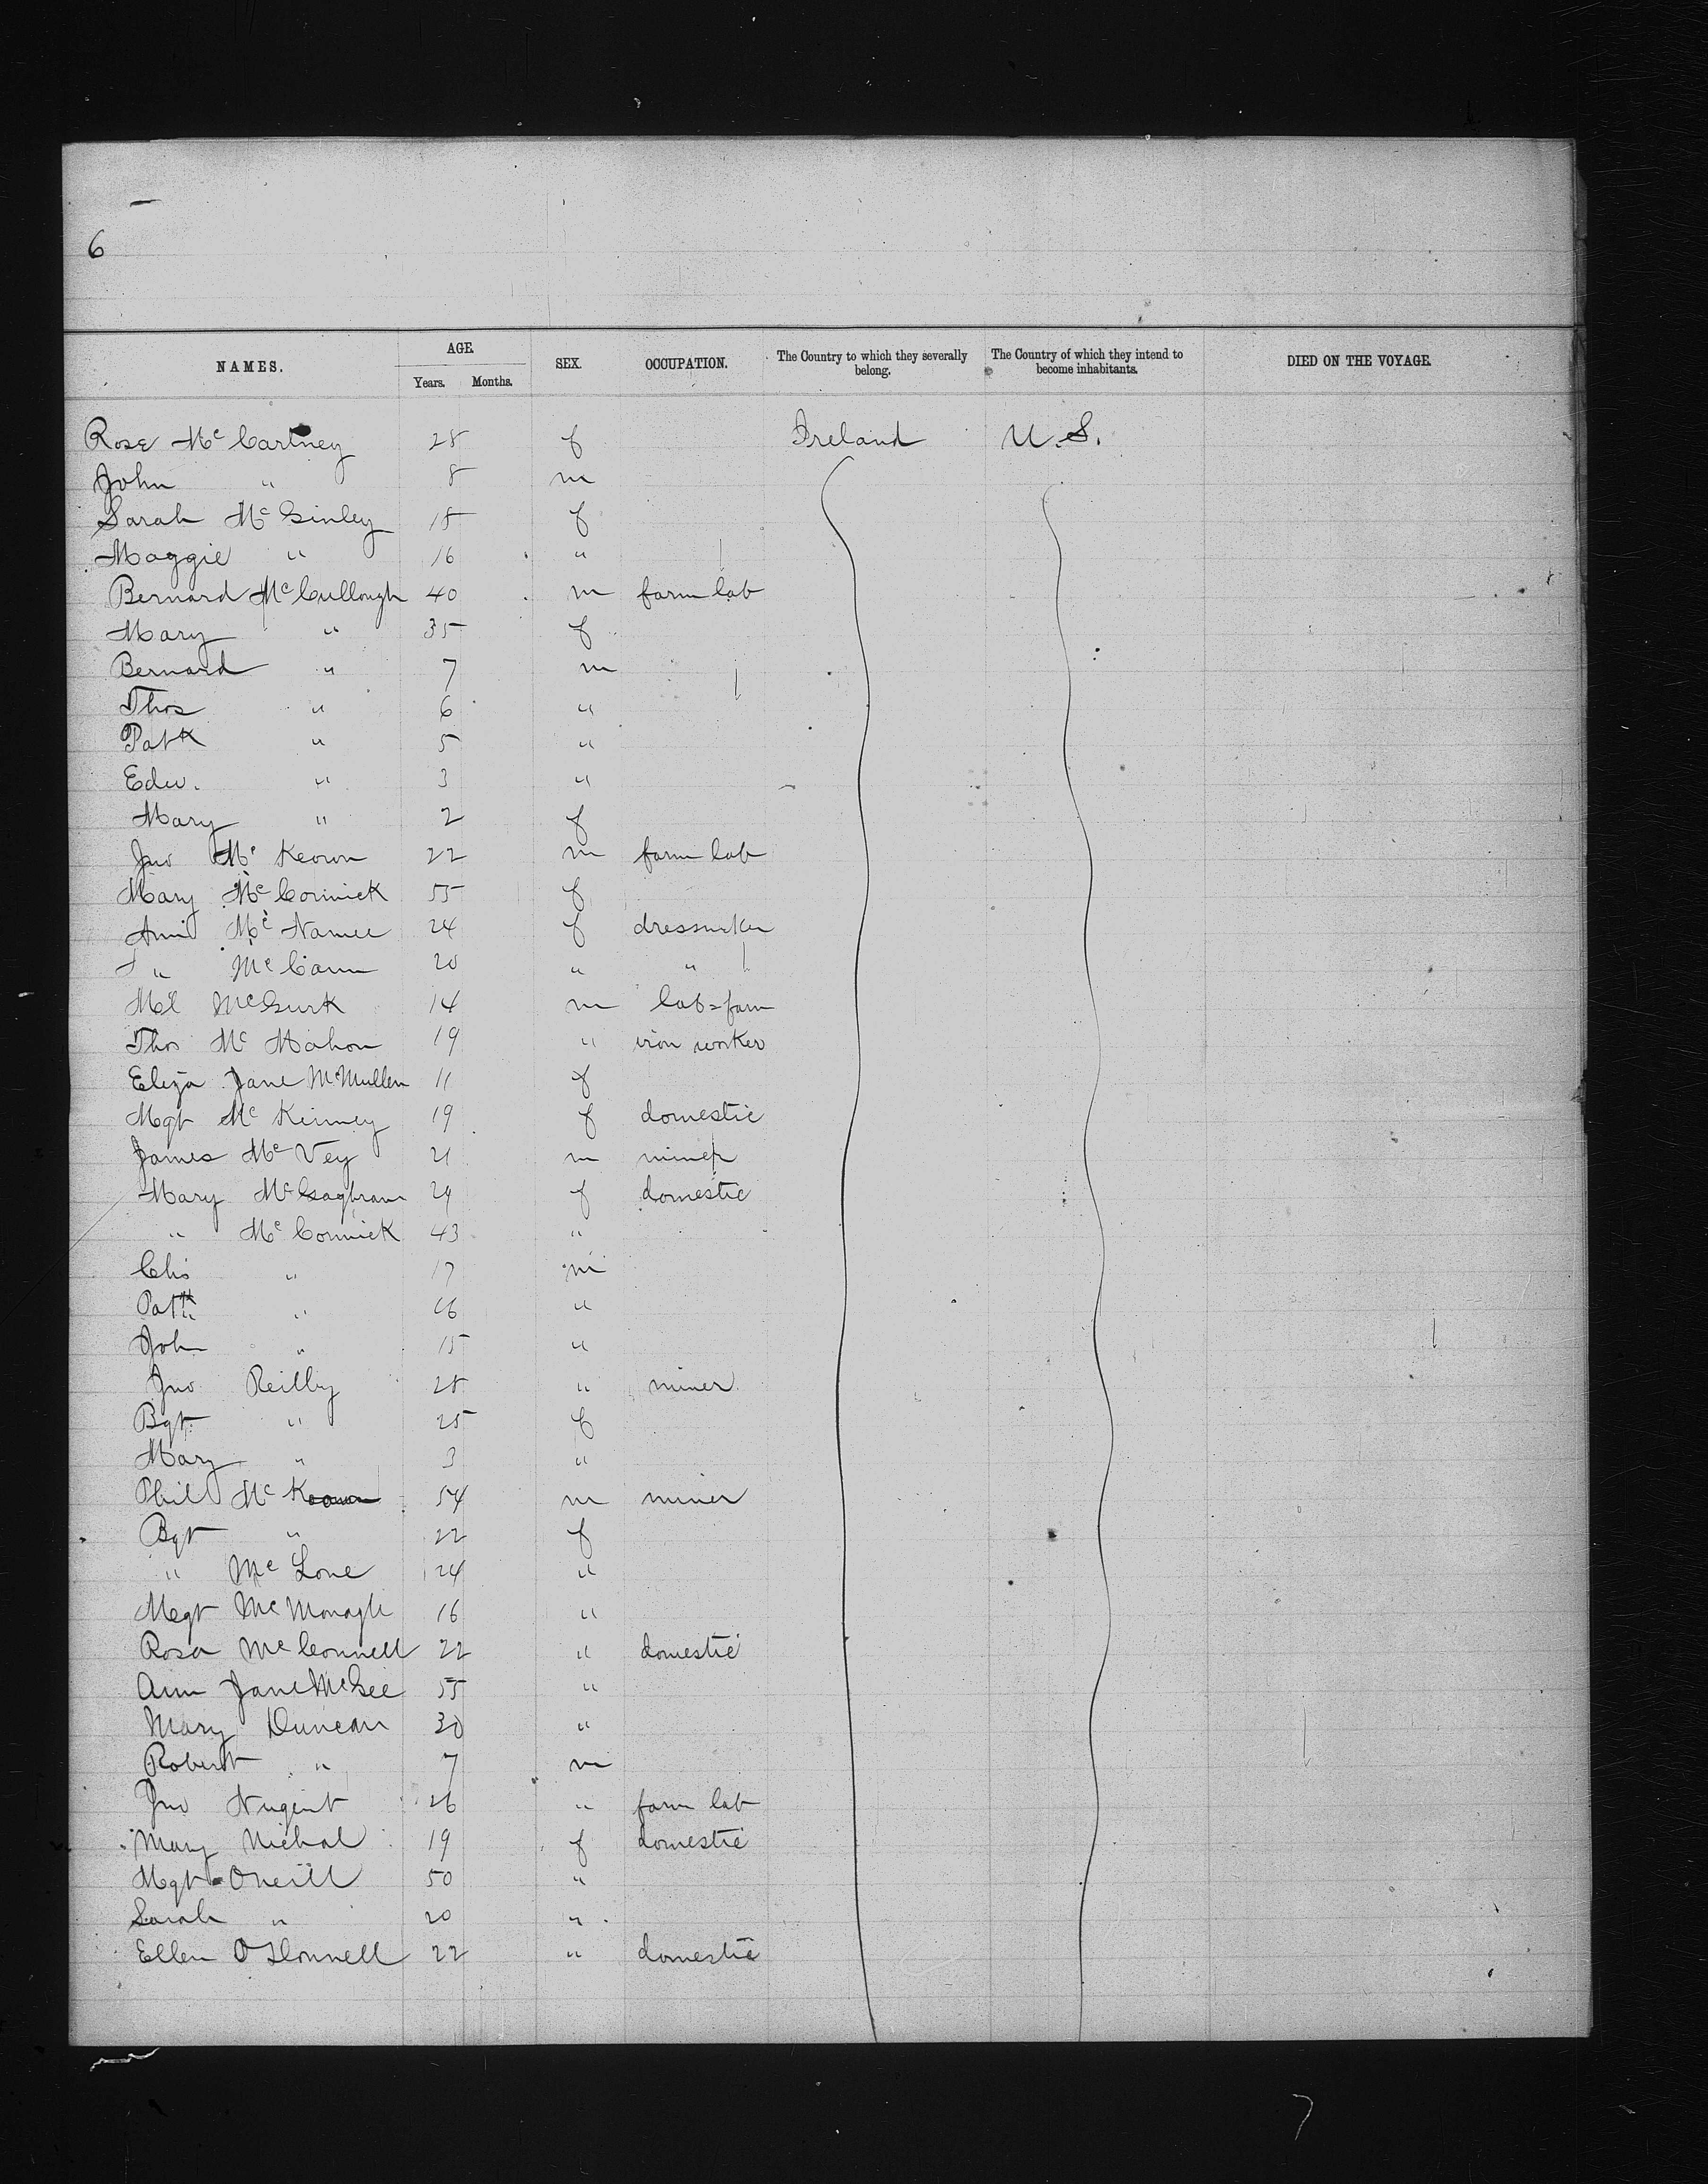 6
NAMES. AGE. Years. Months. SEX. OCCUPATION. The Country to which they severally belong. The Country of which they intend to become inhabitants. DIED ON THE VOYAGE.
Rose McCartney 28 f Ireland U.S.
John " 8 m
Sarah McGinley 18 f
Maggie " 16 "
Bernard McCullough 40 m farm lab
Mary " 35 f
Bernard " 7 m
Thos " 6 "
Patk " 5 "
Edw. " 3 "
Mary " 2 f
Jno McKeown 22 m farm lab
Mary McCormick 55 f
Ann McNamee 24 f dressmker
" McCann 20 " "
Ml McGurk 14 m lab=farm
Thos McMahon 19 " iron worker
Eliza Jane McMullen 11 f
Mgt McKinney 19 f domestic
James McVey 21 m miner
Mary 29 f domestic
" McCormick 43 "
Chs " 17 m
Patk " 16 "
John " 15 "
Jno Reilly 28 " miner
Bgt " 25 f
Mary " 3 "
Phil McK 54 m miner
Bgt " 22 f
" McLone 24 "
Mgt McMonagle 16 "
Rosa McConnell 22 " domestic
Ann Jane McGee 55 "
Mary Duncan 30 "
Robert " 7 m
Jno Nugent 26 " farm lab
Mary Nichol 19 f domestic
Mgt Oneill 50 "
Sarah " 20 "
Ellen O'Donnell 22 " domestic